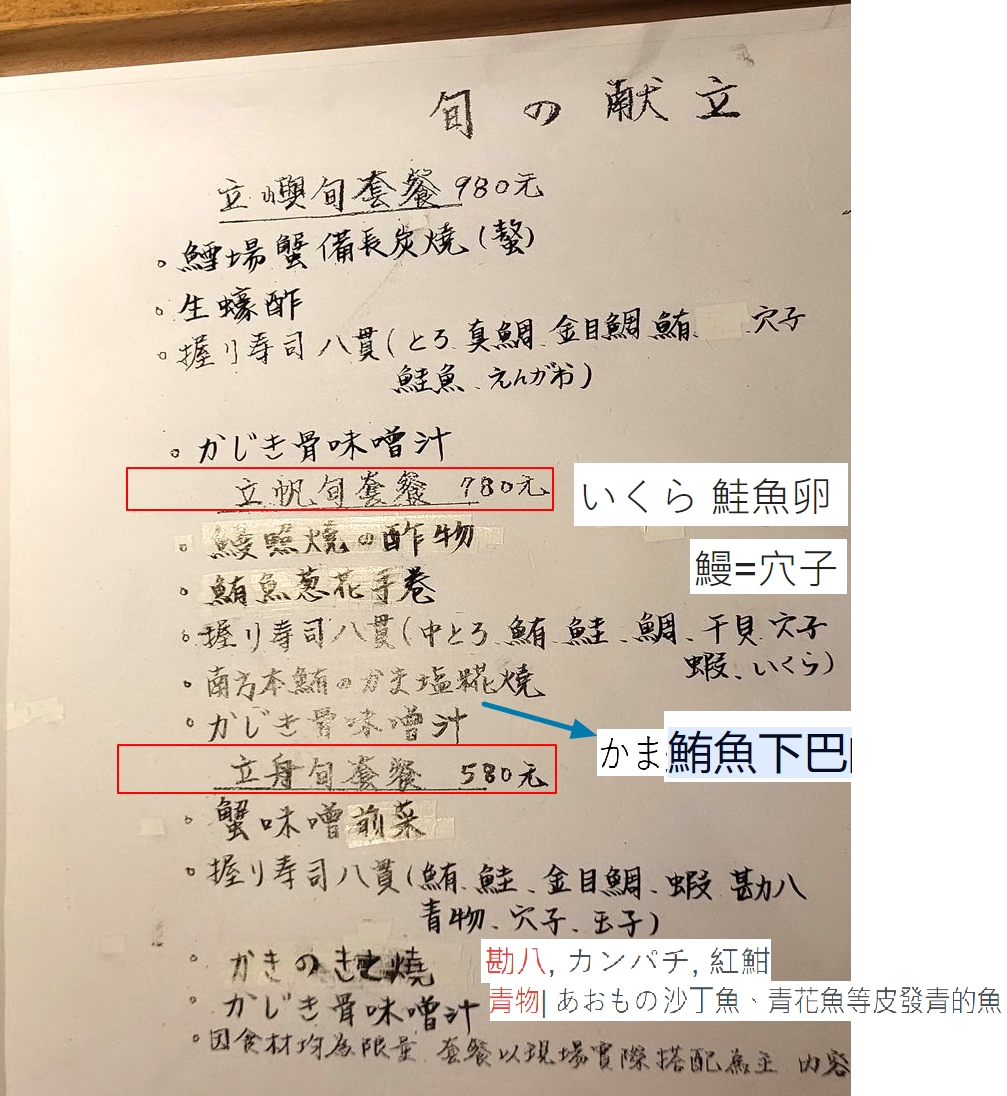 旬の献立
立嶼旬套餐980元
。鱈場蟹備長炭燒(螯)
。生蠔酢
。握り寿司八貫(とろ 真鯛 金目鯛 鮪、穴子
鮭魚、えんがわ)
。かじき骨味噌汁
立帆旬套餐 780元
いくら 鮭魚卵
。鰻照燒の酢物
鰻=穴子
。鮪魚葱花手巻
。握り寿司八貫(中とろ、鮪、鮭、鯛、干貝 穴子
蝦、いくら)
。南方本鮪のかま塩糀燒
。かじき骨味噌汁
かま 鮪魚下巴
立舟旬套餐 580元
。蟹味噌前菜
。握り寿司八貫(鮪、鮭、金目鯛、蝦 勘八
青物、穴子、玉子)
。かきの燒
勘八, カンパチ, 紅魽
青物| あおもの沙丁魚、青花魚等皮發青的魚
。かじき骨味噌汁
。因食材均為限量 套餐以現場實際搭配為主 内容